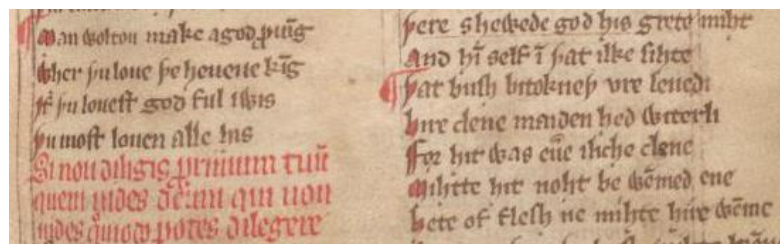 Man woltou make a god p̱uīg
Wher þu loue þe heuene kīg
ȝif þu louest god ful iwis
þu most louen alle his
Si non diligis p̱ximum tuū
quem uides deum qui non
uides quō potes diligere
þere shewede god his grete miht
And hī self ī þat ilke sihte
Þat bush bitokneþ vre leuedi
hire clene maiden hed witerli
For hit was eue iliche clene
Mihtte hit noht be wēmed ene
hete of flesh ne mihte hire wēme